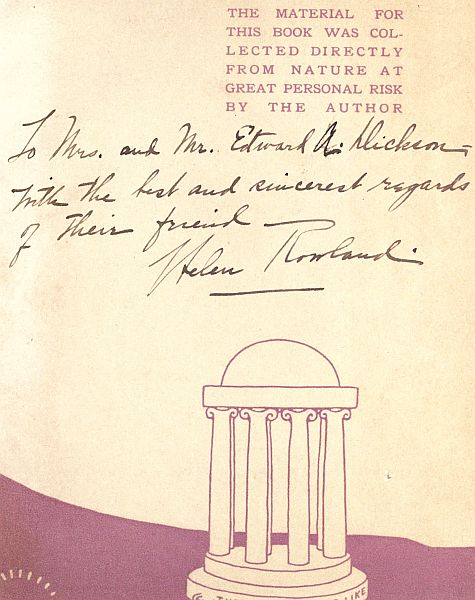 THE MATERIAL FOR
THIS BOOK WAS COL-
LECTED DIRECTLY
FROM NATURE AT
GREAT PERSONAL RISK
BY THE AUTHOR
To Mrs. and Mr. Edward A. Dickson -
With the best and sincerest regards
of their friend —
Helen Rowland.
LIKE